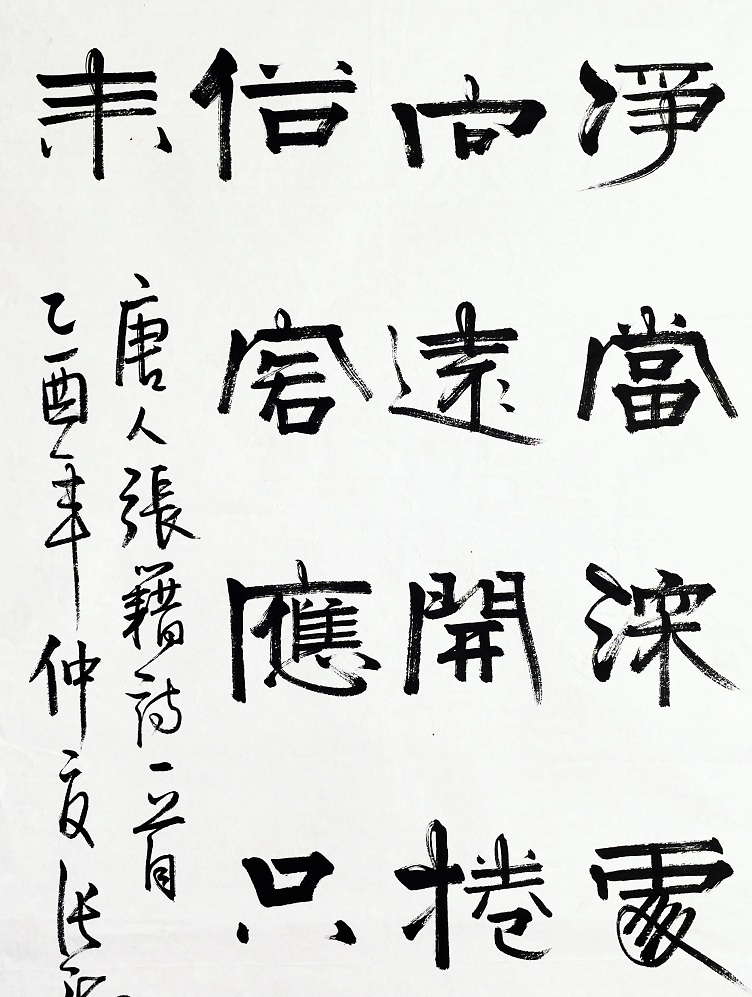 淨當深處
向遠開捲
俗客應只
来
唐人張籍詩一首
乙酉年仲夏张